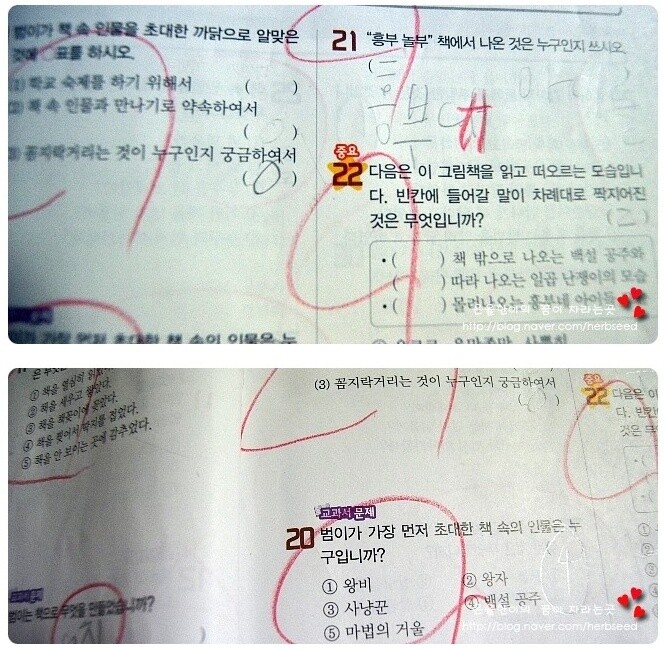 범이가 책 속 인물을 초대한 까닭으로 알맞은
것에 ○표를 하시오.
(1) 학교 숙제를 하기 위해서 ( )
(2) 책 속 인물과 만나기로 약속하여서
( )
(3) 꼼지락거리는 것이 누구인지 궁금하여서
(○)
가장 먼저 초대한 책 속의 인물은 누
21 "흥부 놀부" 책에서 나온 것은 누구인지 쓰시오.
( )
흥부
중요
22 다음은 이 그림책을 읽고 떠오르는 모습입니
다. 빈칸에 들어갈 말이 차례대로 짝지어진
것은 무엇입니까? (2)
• ( ) 책 밖으로 나오는 백설 공주와
• ( ) 따라 나오는 일곱 난쟁이의 모습
• ( ) 몰려나오는 흥부네 아이들
꿈이 자라는곳
http://blog.naver.com/herbseed
① 책을 열심히 읽
② 책을 세우고
③ 책을 책꽂이에 꽂았다.
④ 책을 찢어서 딱지를 접었다.
⑤ 책을 안 보이는 곳에 감추었다.
범이는 책으로 무엇을 만들었습니까?
)
(3) 꼼지락거리는 것이 누구인지 궁금하여서
(○)
교과서 문제
20 범이가 가장 먼저 초대한 책 속의 인물은 누
구입니까?
① 왕비 ② 왕자
③ 사냥꾼 ④ 백설 공주
⑤ 마법의 거울
중요
22 다음은 이
다. 빈칸
것은 무
꿈이 자라는곳
http://blog.naver.com/herbseed